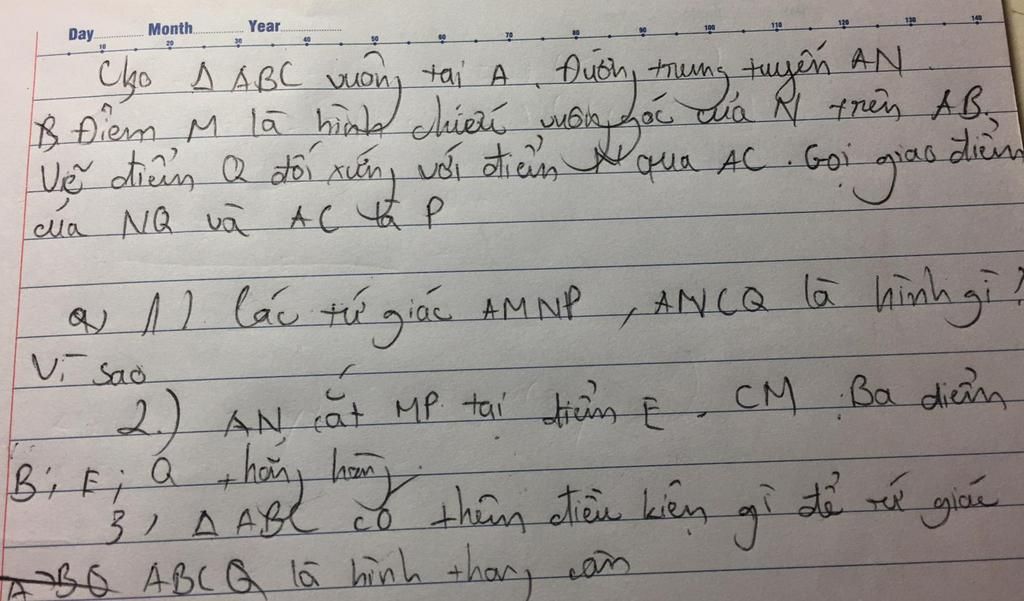 Day Month Year
10 20 30 40 50 60 70 80 90 100 110 120 130 140
Cho Δ ABC vuông tại A. Đường trung tuyến AN.
Điểm M là hình chiếu vuông góc của N trên AB.
Vẽ điểm Q đối xứng với điểm N qua AC. Gọi giao điểm
của NQ và AC là P
a, 1) Các tứ giác AMNP, ANCQ là hình gì?
Vì sao
2.) AN cắt MP tại điểm E. CM Ba điểm
B; E; Q thẳng hàng.
3, Δ ABC có thêm điều kiện gì để tứ giác
ABCQ là hình thang cân